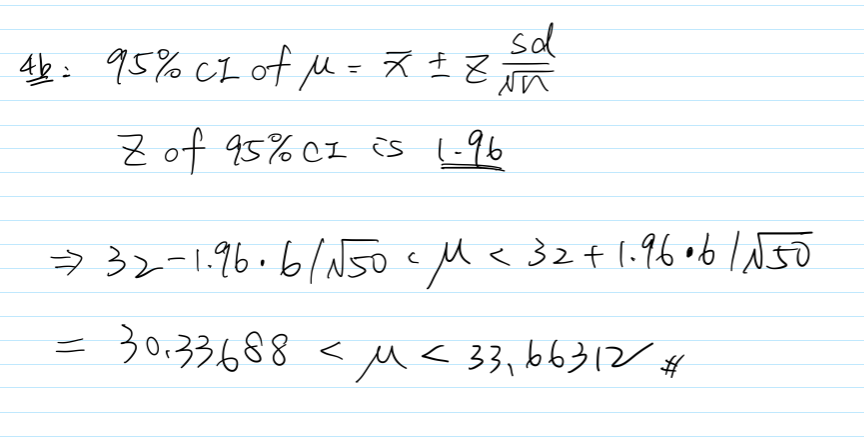 4b: 95% CI of μ = x̄ ± z sd/√n
Z of 95% CI is 1.96
⇒ 32-1.96·6/√50 < μ < 32+1.96·6/√50
= 30.33688 < μ < 33.66312 #